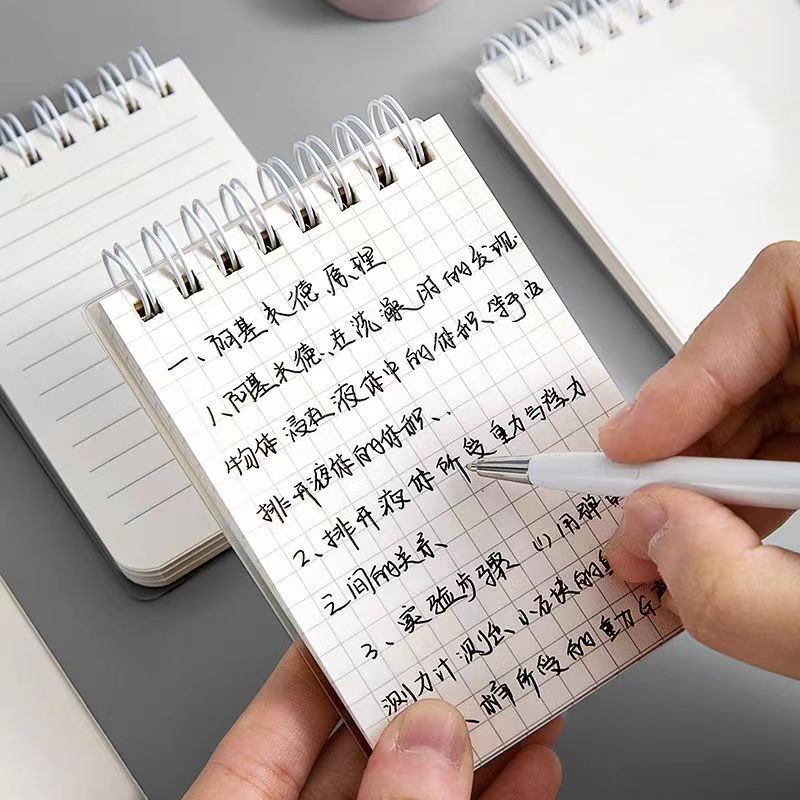 一、阿基米德原理
1、阿基米德、在洗澡时的发现
物体浸在液体中的体积、等于它
排开液体的体积、.
2、排开液体所受重力与浮力
之间的关系、
3、实验步骤 (1)用弹簧
测力计测出、小石块的重
、桶所受的重力G